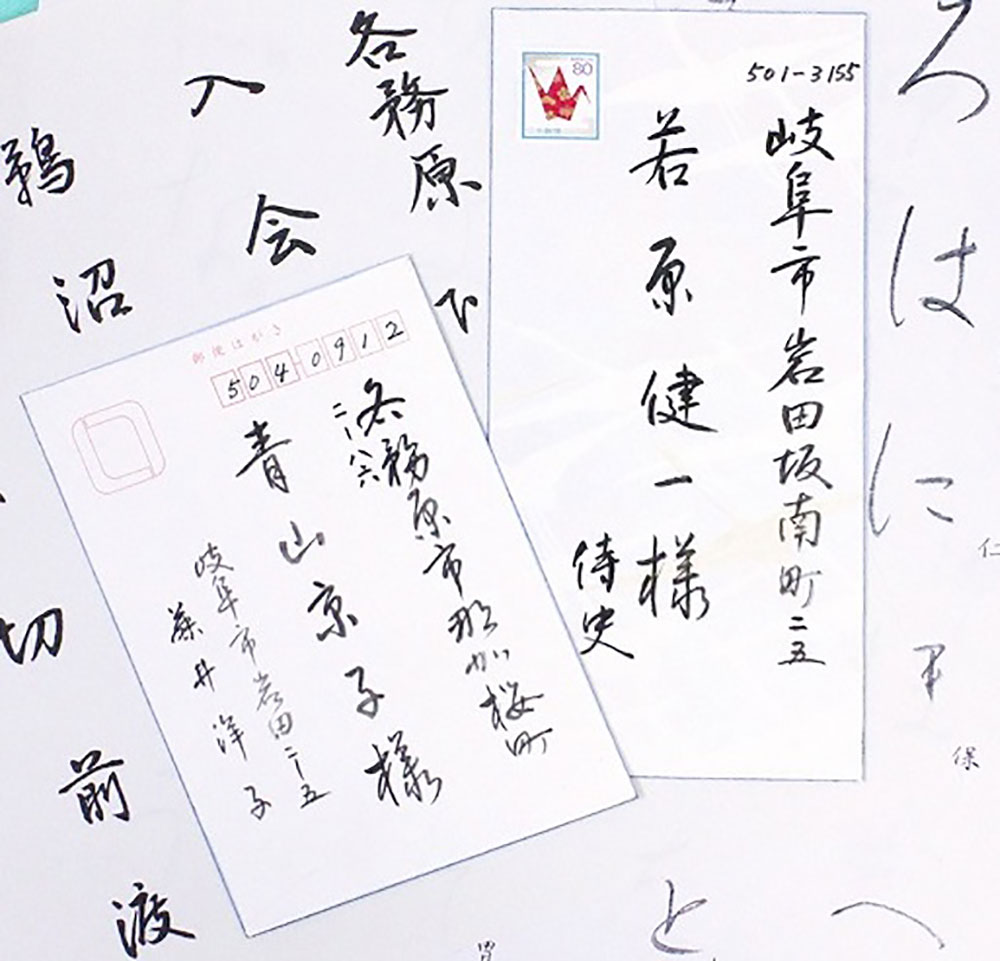 ろはに
仁
保
へ
と
501-3155
岐阜市岩田坂南町二ー五
若原健一様
侍史
80
各務原
入会
鵜沼
切
前渡
郵便はがき
5040912
各務原市那加桜町
二ー八六
青山京子様
岐阜市岩田二ー五
藤井洋子